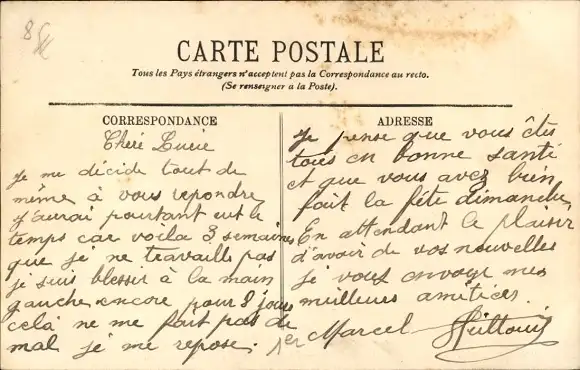 CARTE POSTALE
Tous les Pays étrangers n'acceptent pas la Correspondance au recto.
(Se renseigner a la Poste).
CORRESPONDANCE
Cheré Lucie
Je me décide tout de
même à vous repondre
j'aurai pourtant eut le
temps car voila 3 semaines
que je ne travaille pas
je suis blessir à la main
gauche encore pour 8 jours
celà ne me fait pas de
mal je me repose.
ADRESSE
Je pense que vous êtes
tous en bonne santé
et que vous avez bien
fait la fête dimanche,
En attendant le plaisir
d'avoir de vos nouvelles
je vous envoye mes
meilleurs amitiées.
1er Marcel